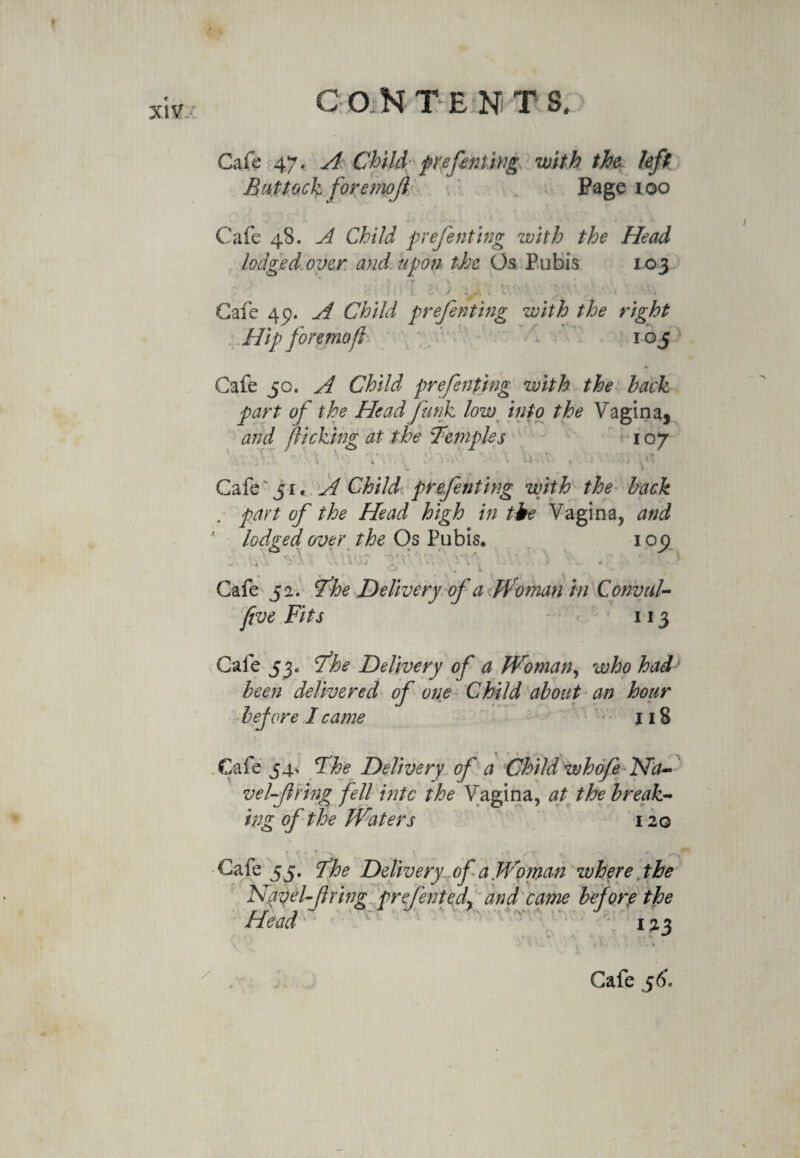 xiv
CONTENTS.
Caſe 47. A Child preſenting with the left
Buttock foremoſt Page 100
Caſe 48. A Child preſenting with the Head
lodged over and upon the Os Pubis 103
Caſe 49. A Child preſenting with the right
Hip foremoſt 105
Caſe 50. A Child preſenting with the back
part of the Head ſunk low into the Vagina,
and ſticking at the Temples 107
Caſe 51. A Child preſenting with the back
part of the Head high in the Vagina, and
lodged over the Os Pubis. 109
Caſe 52. The Delivery of a Woman in Convul-
ſive Fits 113
Caſe 53. The Delivery of a Woman, who had
been delivered of one Child about an hour
before I came 118
Caſe 54. The Delivery of a Child whoſe Na-
vel-ſtring fell intc the Vagina, at the break-
ing of the Waters 120
Caſe 55. The Delivery of a Woman where the
Navel-ſtring preſented, and came before the
Head 123
Caſe 56.